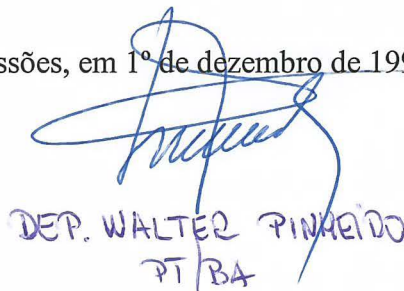 ssões, em 1º de dezembro de 199
DEP. WALTER PINHEIRO
PT/BA